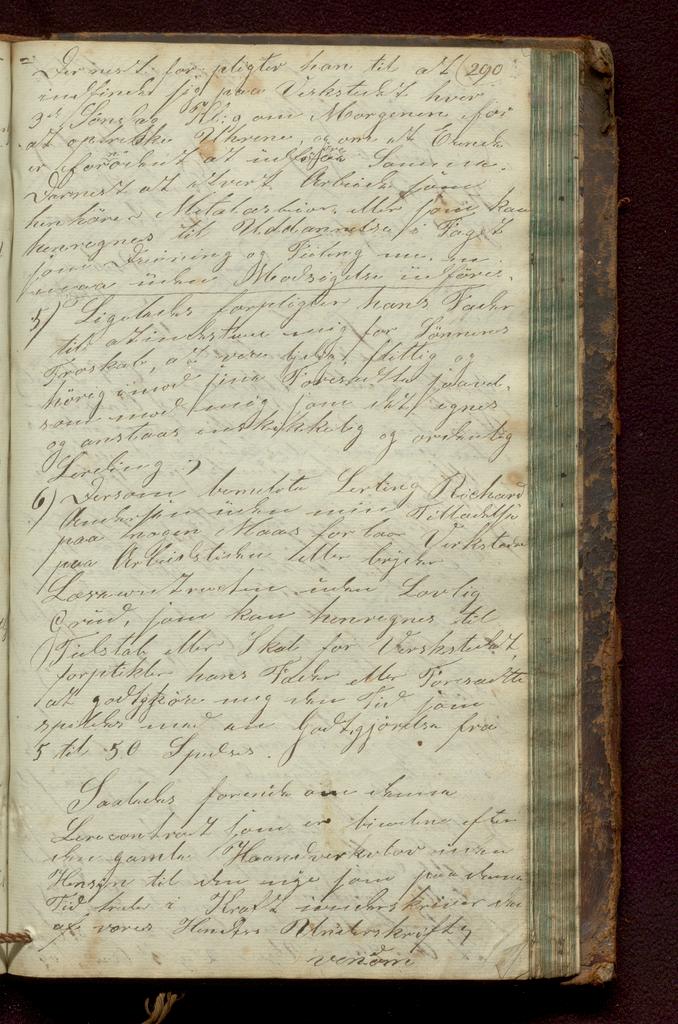 Dernest forpligter han til at 290
indfinde sig paa Verkstedet hver
3de Søndag Kl: 9 om Morgenen for
at optrekke Uhrene, og om et Eiende
er forödent at udføre Samme.
Dernest at ethvert Arbeide som
henhörer Metalarbior, eller som kan
henregnes til Uddannelse i Faget
som Dreining og Fieling m. m.
maa uden Modsigelse udföres.
5) Ligeledes forpligter hans Fader
til at indestaa mig for Sönnens
Troskab, at være lydig, flittig og
hörig imod sine Foresadte saavel
som mod mig som det egnes
og anstaar en skikkelig og ordentlig
Lerling
6) Dersom bemeldte Lerling Richard
Andersen uden min Tilladelse
paa nogen Maas forlader Verkstedet
paa Arbeidstiden eller bryder
Lærecontracten uden Lovlig
Grund, som kan henregnes til
Tidstab eller Skade for Verkstedet,
forpligter hans Fader eller Foresadte
at godtgjöre mig den Tid som
spildes med en Godtgjörelse fra
5 til 50 Specdr.
Saaledes forenede om denne
Lerecontract som er bindene efter
den gamle Haandverkslov uden
Hensyn til den nye som paa denne
Tid træder i Kraft underskriver den
af vores Henders Underskrift,